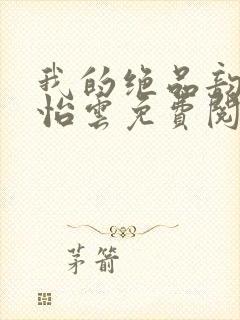 我的绝品
怡雲免費閱
茅箭